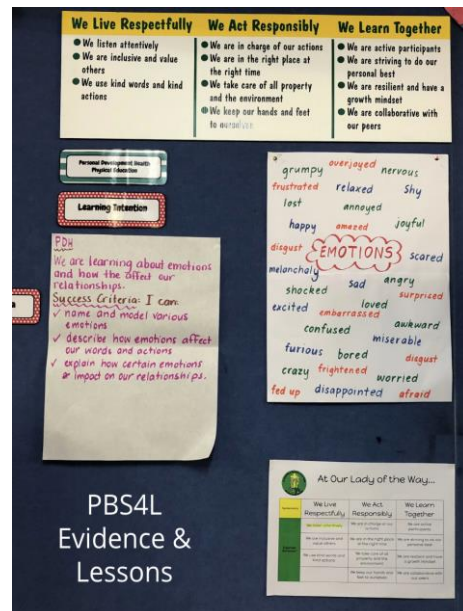 We Live Respectfully
We listen attentively
We are inclusive and value
others
We use kind words and kind
actions
We Act Responsibly
We are in charge of our actions
We are in the right place at
the right time
We take care of all property
and the environment
We keep our hands and feet
to ourselves
We Learn Together
We are active participants
We are striving to do our
personal best
We are resilient and have a
growth mindset
We are collaborative with
our peers
Personal Development Health
Physical Education
Learning Intention
PDH
We are learning about emotions
and how the affect our
relationships.
Success Criteria: I can:
✓ name and model various
emotions
✓ describe how emotions affect
our words and actions
✓ explain how certain emotions
impact on our relationships.
grumpy overjoyed nervous
frustrated relaxed Shy
lost annoyed
happy amazed joyful
disgust EMOTIONS scared
melanchaly
shocked sad angry
surprised
excited embarrassed loved
confused awkward
miserable
furious bored disgust
crazy frightened worried
fed up disappointed afraid
At Our Lady of the Way...
We Live
Respectfully
We Act
Responsibly
We Learn
Together
PBS4L
Evidence &
Lessons